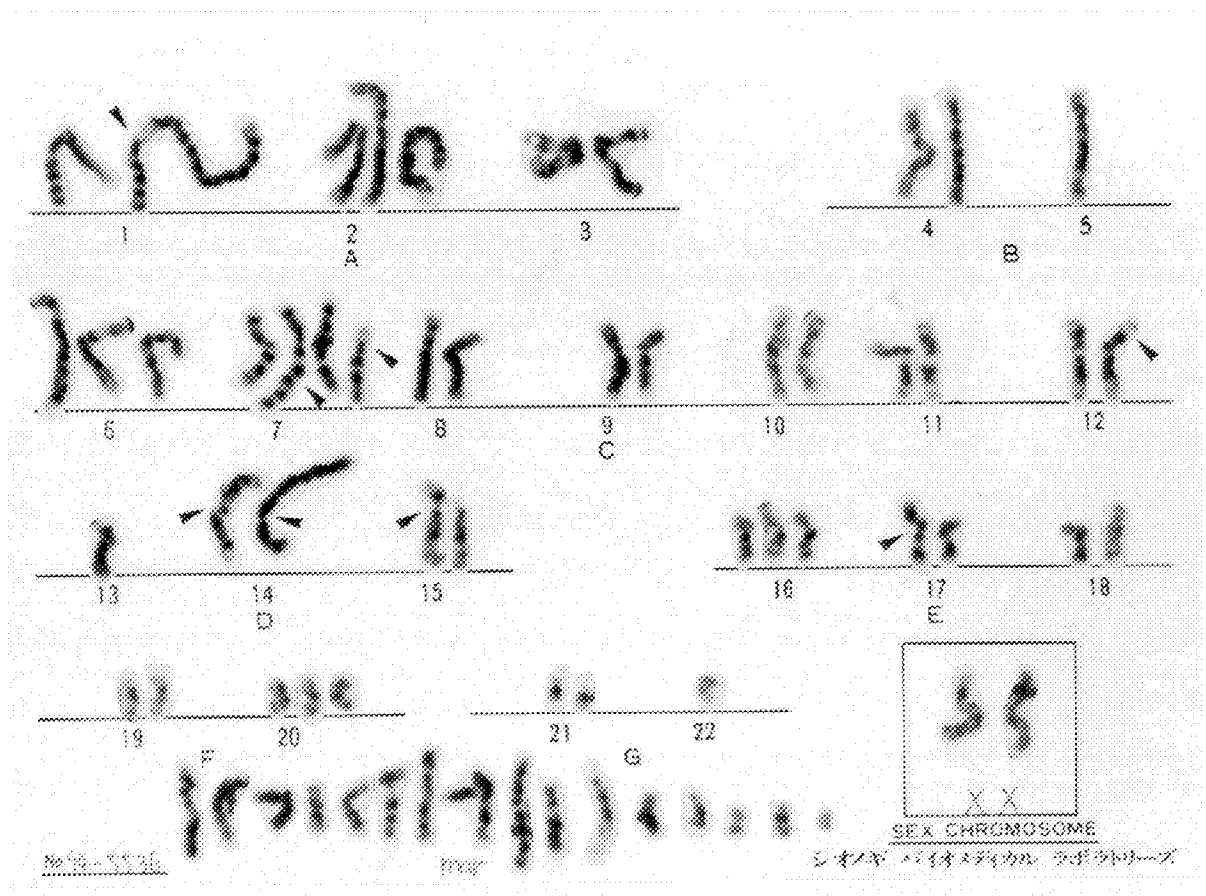 1 2 3 4 5
A B
6 7 8 9 10 11 12
C
13 14 15 16 17 18
D E
19 20 21 22
F G
X X
SEX CHROMOSOME
mar
バイオメディカル ラボラトリーズ